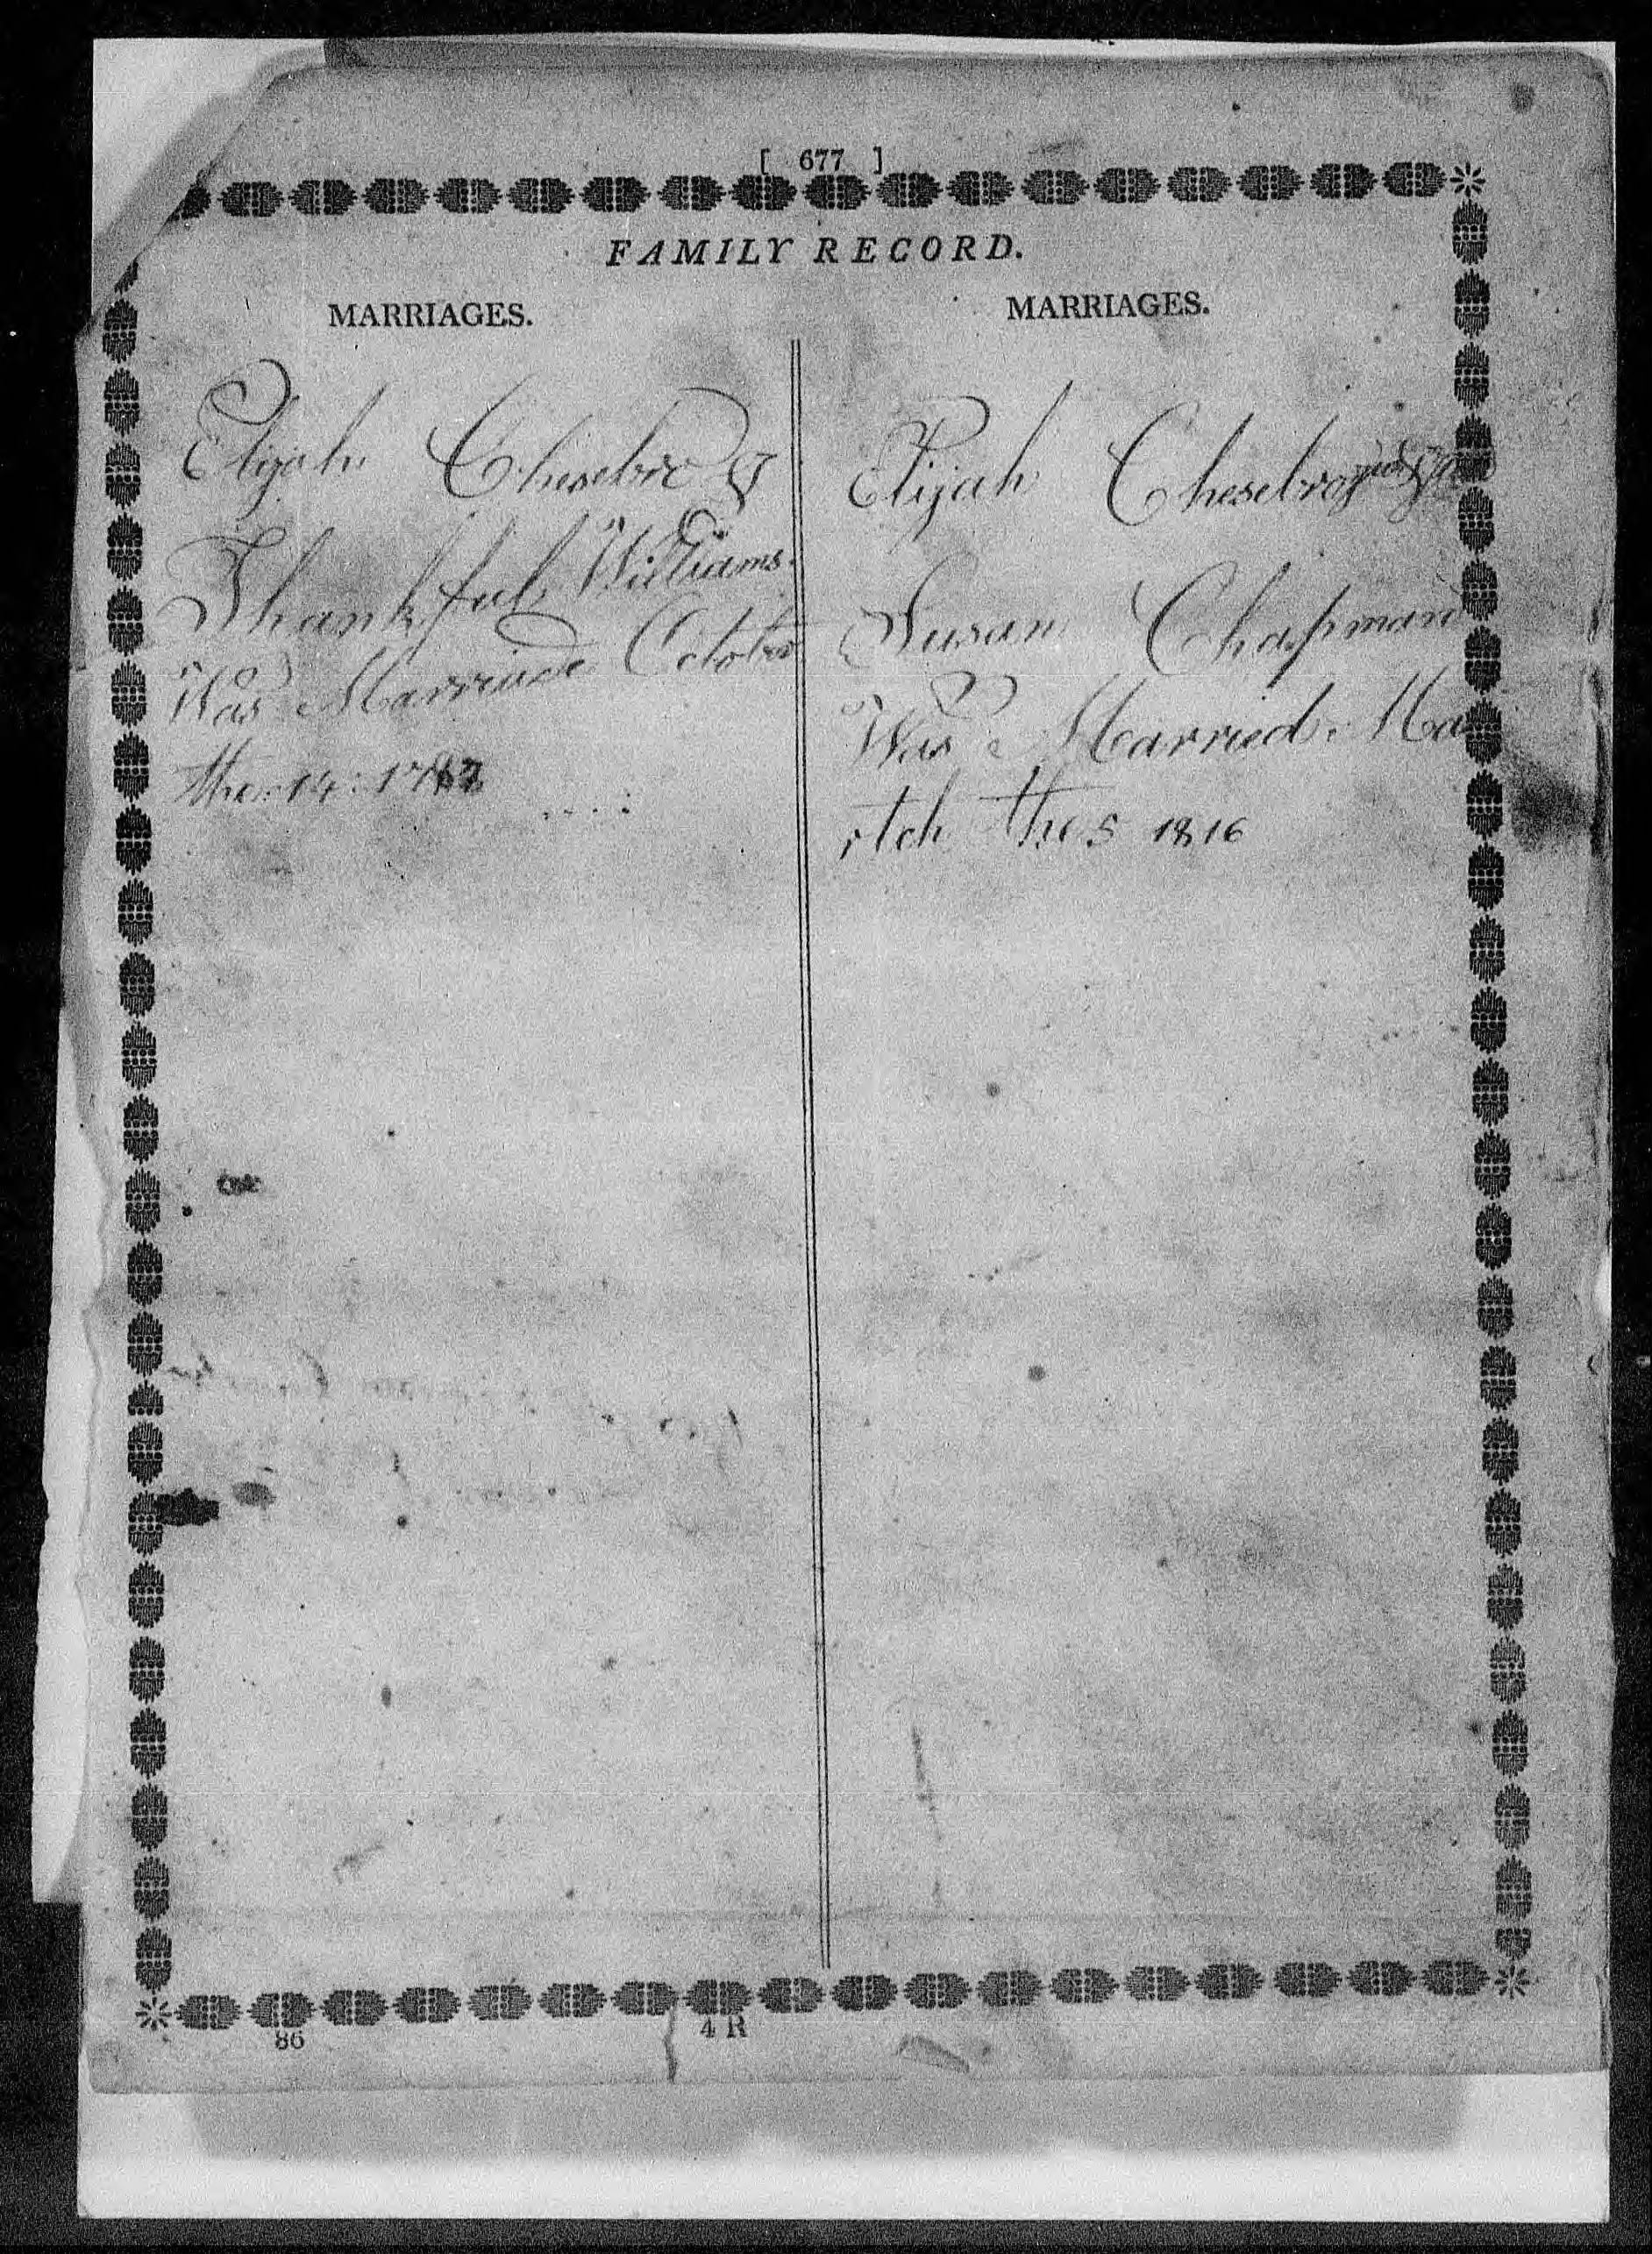 [ 677 ]
FAMILY RECORD.
MARRIAGES.
Elijah Chesebro &
Thankful Williams
Was Married October
the 14: 1782
MARRIAGES.
Elijah Chesebro &
Susan Chapman
Was Married Ma
rtch the 5 1816
86
4 R